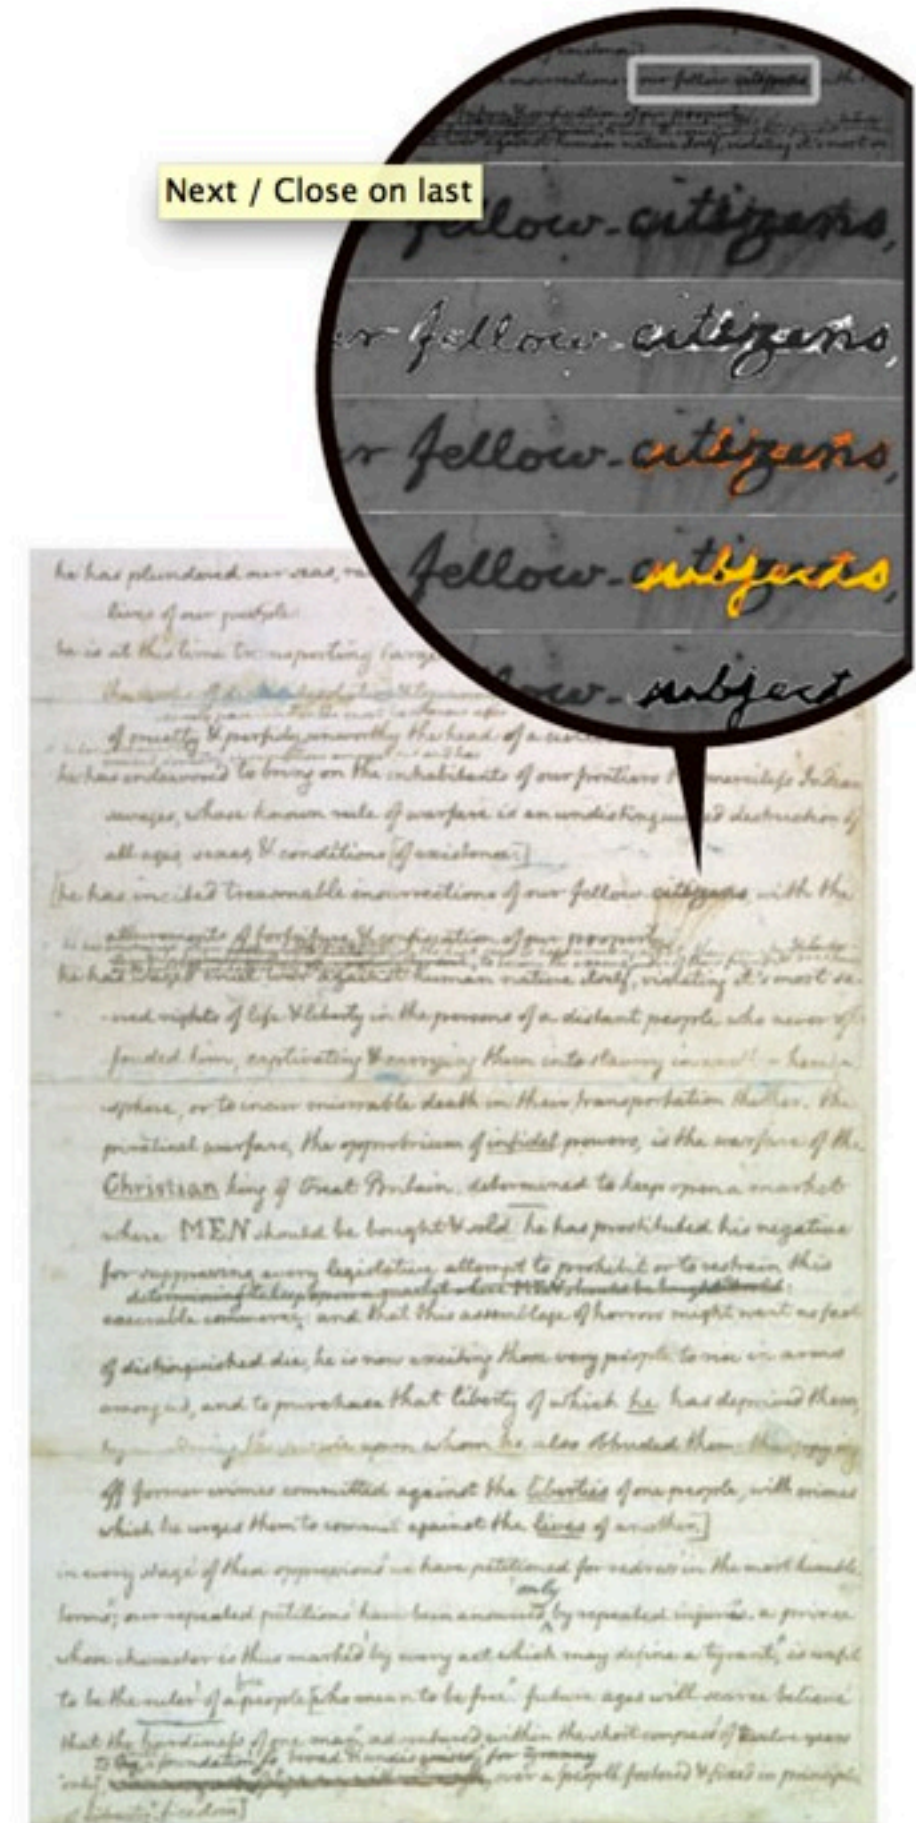 our fellow citizens with
against human nature itself, violating it's most
Next / Close on last
fellow-citizens,
fellow-citizens,
fellow-citizens,
fellow-subjects,
subject
he has plundered our seas,
lives of our people
he is at this time transporting large
of cruelty & perfidy unworthy the head of a
he has endeavored to bring on the inhabitants of our frontiers the merciless Indian
savages, whose known rule of warfare is an undistinguished destruction of
all ages, sexes, & conditions [of existence.]
[he has incited treasonable insurrections of our fellow citizens with the
allurements of forfeiture & confiscation of our property
he has waged cruel war against human nature itself, violating it's most sa-
-cred rights of life & liberty in the persons of a distant people who never of-
fended him, captivating & carrying them into slavery in
sphere, or to incur miserable death in their transportation thither. this
piratical warfare, the opprobrium of infidel powers, is the warfare of the
Christian king of Great Britain. determined to keep open a market
where MEN should be bought & sold he has prostituted his negative
for suppressing every legislative attempt to prohibit or to restrain this
determining to keep open a market where MEN should be bought & sold:
execrable commerce: and that this assemblage of horrors might want no fact
of distinguished die, he is now exciting those very people to rise in arms
among us, and to purchase that liberty of which he has deprived them,
by upon whom he also obtruded them: thus paying
off former crimes committed against the liberties of one people, with crimes
which he urges them to commit against the lives of another.]
in every stage of these oppressions we have petitioned for redress in the most humble
only
terms; our repeated petitions have been answered by repeated injuries. a prince
whose character is thus marked by every act which may define a tyrant, is unfit
to be the ruler of a people [who mean to be free. future ages will scarce believe
that the hardiness of one man adventured within the short compass of twelve years
to lay a foundation so broad & undisguised for tyranny
only over a people fostered & fixed in principles
of freedom]